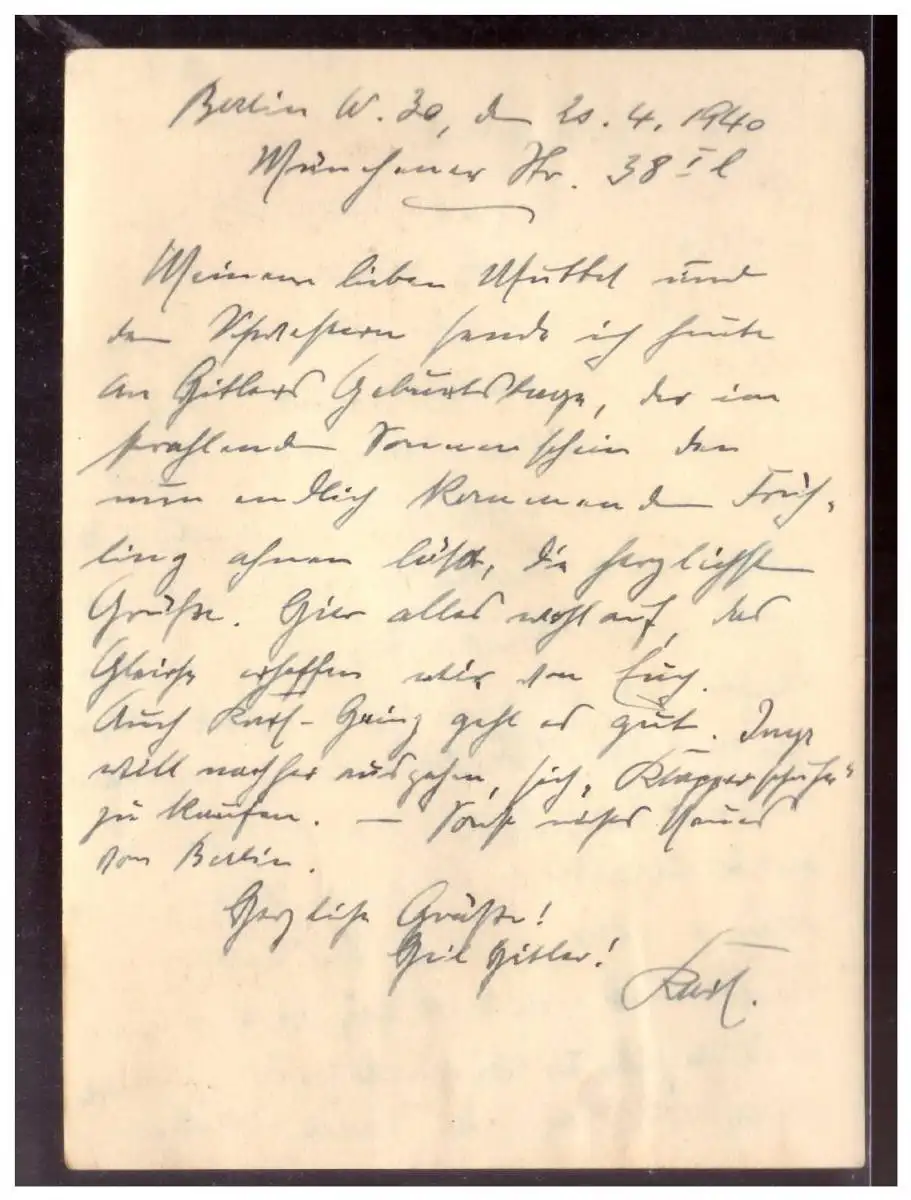 Berlin W. 30, den 20. 4. 1940
Münchener Str. 38 I l
Meinem lieben Muttel und
den Schwestern sende ich heute
an Hitlers Geburtstage, der im
strahlenden Sonnenschein den
nun endlich kommenden Früh-
ling ahnen läßt, die herzlichsten
Grüße. Hier alles wohlauf, das
Gleiche erhoffen wir von Euch.
Auch Karl-Heinz geht es gut. Inge
will nachher ausgehen, sich „Klapperschuhe"
zu kaufen. — Sonst nichts Neues
von Berlin.
Herzliche Grüße!
Heil Hitler!
Karl.